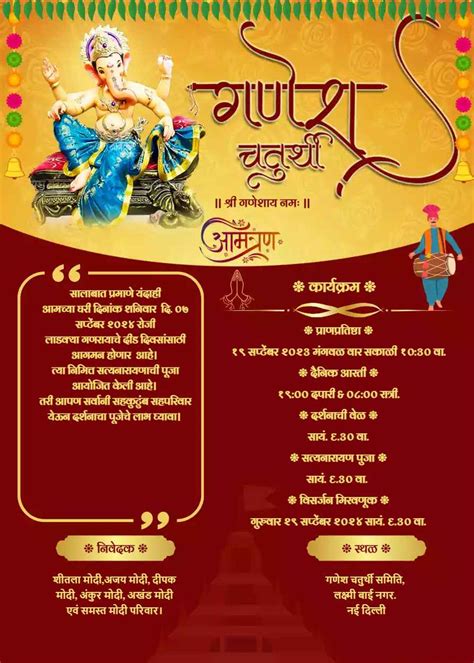 गणेश
चतुर्थी
॥ श्री गणेशाय नमः ॥
आमंत्रण
सालाबात प्रमाणे यंदाही
आमच्या घरी दिनांक शनिवार दि. ०७
सप्टेंबर २०२४ रोजी
लाडक्या गणरायाचे दीड दिवसांसाठी
आगमन होणार आहे।
त्या निमित सत्यनारायणाची पूजा
आयोजित केली आहे।
तरी आपण सर्वांनी सहकुटुंब सहपरिवार
येऊन दर्शनाचा पूजेचे लाभ घ्यावा।
❋ कार्यक्रम ❋
❋ प्राणप्रतिष्ठा ❋
१९ सप्टेंबर २०२३ मंगवळ वार सकाळी १०:३० वा.
❋ दैनिक आरती ❋
१९:०० दपारी & ०८:०० रात्री.
❋ दर्शनाची वेळ ❋
सायं. ६.३० वा.
❋ सत्यनारायण पुजा ❋
सायं. ६.३० वा.
❋ विसर्जन मिरवणूक ❋
गुरुवार २९ सप्टेंबर २०२४ सायं. ६.३० वा.
❋ निवेदक ❋
शीतला मोदी,अजय मोदी, दीपक
मोदी, अंकुर मोदी, अखंड मोदी
एवं समस्त मोदी परिवार।
❋ स्थळ ❋
गणेश चतुर्थी समिति,
लक्ष्मी बाई नगर.
नई दिल्ली